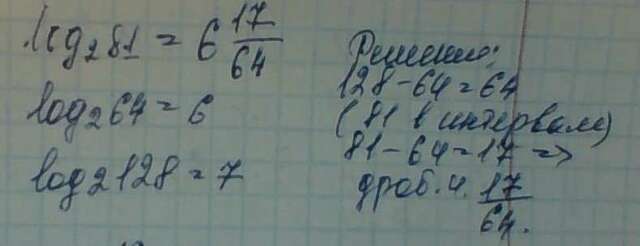 log₂81 = 6 17/64
log₂64 = 6
log₂128 = 7
Решение:
128-64=64
(81 в интервале)
81-64=17 =>
дроб. ч. 17/64.